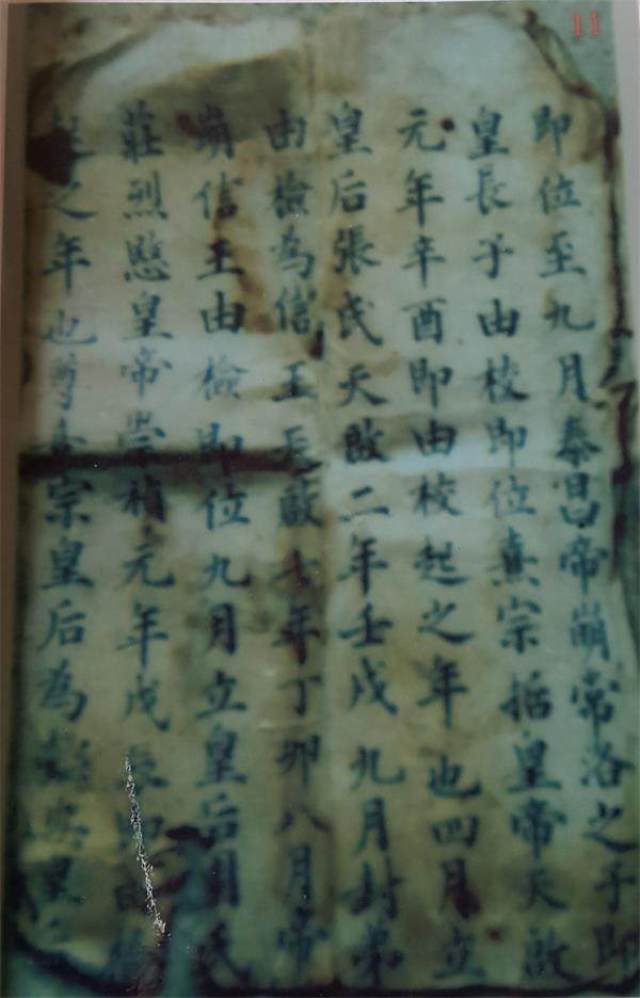 11
即位至九月泰昌帝崩常洛之子即
皇長子由校即位熹宗括皇帝天啟
元年辛酉即由校起之年也四月立
皇后張氏天啟二年壬戌九月封弟
由檢為信王天啟七年丁卯八月帝
崩信王由檢即位九月立皇后周氏
莊烈愍皇帝崇禎元年戊辰即
之年也尊熹宗皇后為懿安皇